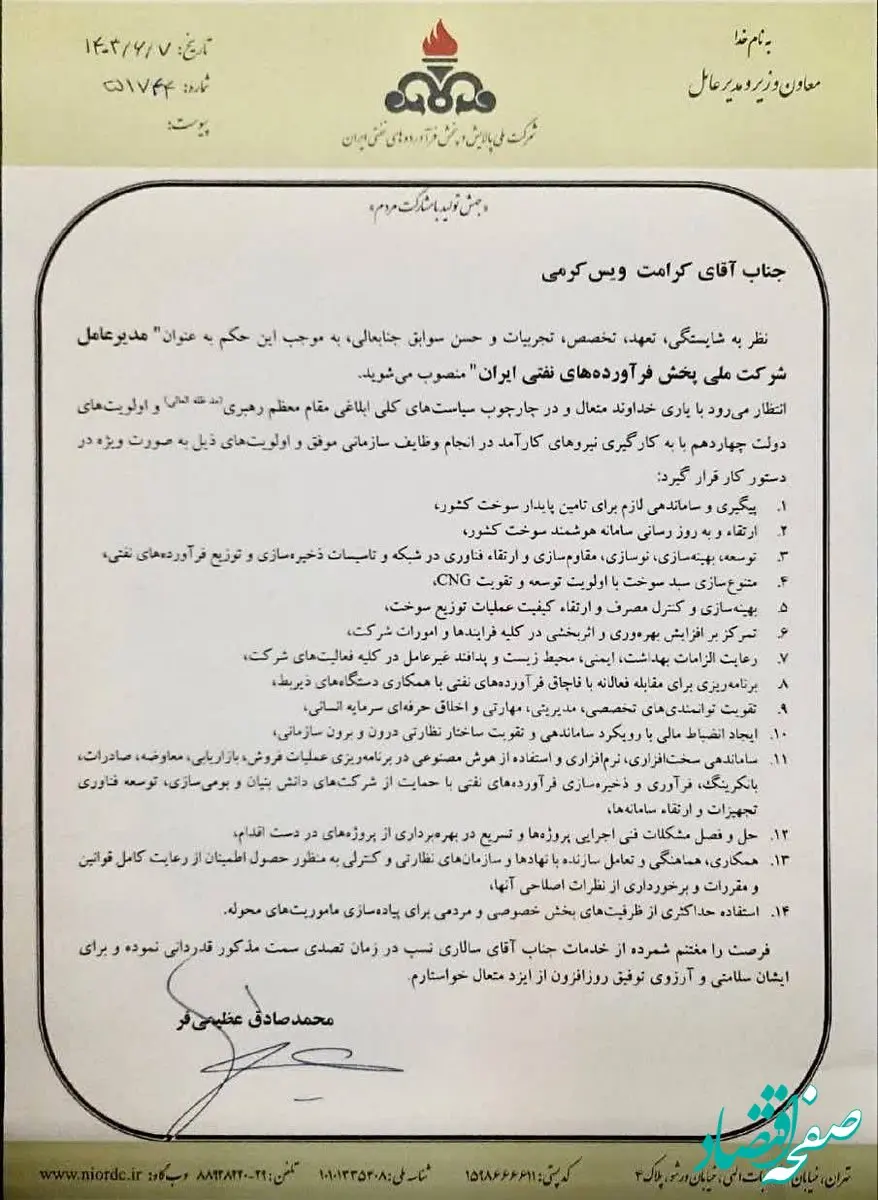 به نام خدا
معاون وزیر و مدیر عامل
تاریخ: ۱۴۰۳/۶/۷
شماره: ۵۱۷۴۴
پیوست:
شرکت ملی پالایش و پخش فرآورده‌های نفتی ایران
«جهش تولید با مشارکت مردم»
جناب آقای کرامت ویس کرمی
نظر به شایستگی، تعهد، تخصص، تجربیات و حسن سوابق جنابعالی، به موجب این حکم به عنوان" مدیرعامل
شرکت ملی پخش فرآورده‌های نفتی ایران" منصوب می‌شوید.
انتظار می‌رود با یاری خداوند متعال و در چارچوب سیاست‌های کلی ابلاغی مقام معظم رهبری(مد ظله العالی) و اولویت‌های
دولت چهاردهم با به کارگیری نیروهای کارآمد در انجام وظایف سازمانی موفق و اولویت‌های ذیل به صورت ویژه در
دستور کار قرار گیرد:
۱. پیگیری و ساماندهی لازم برای تامین پایدار سوخت کشور،
۲. ارتقاء و به روز رسانی سامانه هوشمند سوخت کشور،
۳. توسعه، بهینه‌سازی، نوسازی، مقاوم‌سازی و ارتقاء فناوری در شبکه و تاسیسات ذخیره‌سازی و توزیع فرآورده‌های نفتی،
۴. متنوع‌سازی سبد سوخت با اولویت توسعه و تقویت CNG،
۵. بهینه‌سازی و کنترل مصرف و ارتقاء کیفیت عملیات توزیع سوخت،
۶. تمرکز بر افزایش بهره‌وری و اثربخشی در کلیه فرایندها و امورات شرکت،
۷. رعایت الزامات بهداشت، ایمنی، محیط زیست و پدافند غیرعامل در کلیه فعالیت‌های شرکت،
۸. برنامه‌ریزی برای مقابله فعالانه با قاچاق فرآورده‌های نفتی با همکاری دستگاه‌های ذیربط،
۹. تقویت توانمندی‌های تخصصی، مدیریتی، مهارتی و اخلاق حرفه‌ای سرمایه انسانی،
۱۰. ایجاد انضباط مالی با رویکرد ساماندهی و تقویت ساختار نظارتی درون و برون سازمانی،
۱۱. ساماندهی سخت‌افزاری، نرم‌افزاری و استفاده از هوش مصنوعی در برنامه‌ریزی عملیات فروش، بازاریابی، معاوضه، صادرات،
بانکرینگ، فرآوری و ذخیره‌سازی فرآورده‌های نفتی با حمایت از شرکت‌های دانش بنیان و بومی‌سازی، توسعه فناوری
تجهیزات و ارتقاء سامانه‌ها،
۱۲. حل و فصل مشکلات فنی اجرایی پروژه‌ها و تسریع در بهره‌برداری از پروژه‌های در دست اقدام،
۱۳. همکاری، هماهنگی و تعامل سازنده با نهادها و سازمان‌های نظارتی و کنترلی به منظور حصول اطمینان از رعایت کامل قوانین
و مقررات و برخورداری از نظرات اصلاحی آنها،
۱۴. استفاده حداکثری از ظرفیت‌های بخش خصوصی و مردمی برای پیاده‌سازی ماموریت‌های محوله.
فرصت را مغتنم شمرده از خدمات جناب آقای سالاری نسب در زمان تصدی سمت مذکور قدردانی نموده و برای
ایشان سلامتی و آرزوی توفیق روزافزون از ایزد متعال خواستارم.
محمدصادق عظیمی‌فر
صفحه اقتصاد
تهران، خیابان الهی، خیابان ورشو، پلاک ۴ کد پستی: ۱۵۹۸۶۶۶۶۱۱ شناسه ملی: ۱۰۱۰۱۳۳۵۳۰۸ تلفن: ۲۹-۸۸۹۲۸۲۲۰ وب گاه: www.niordc.ir